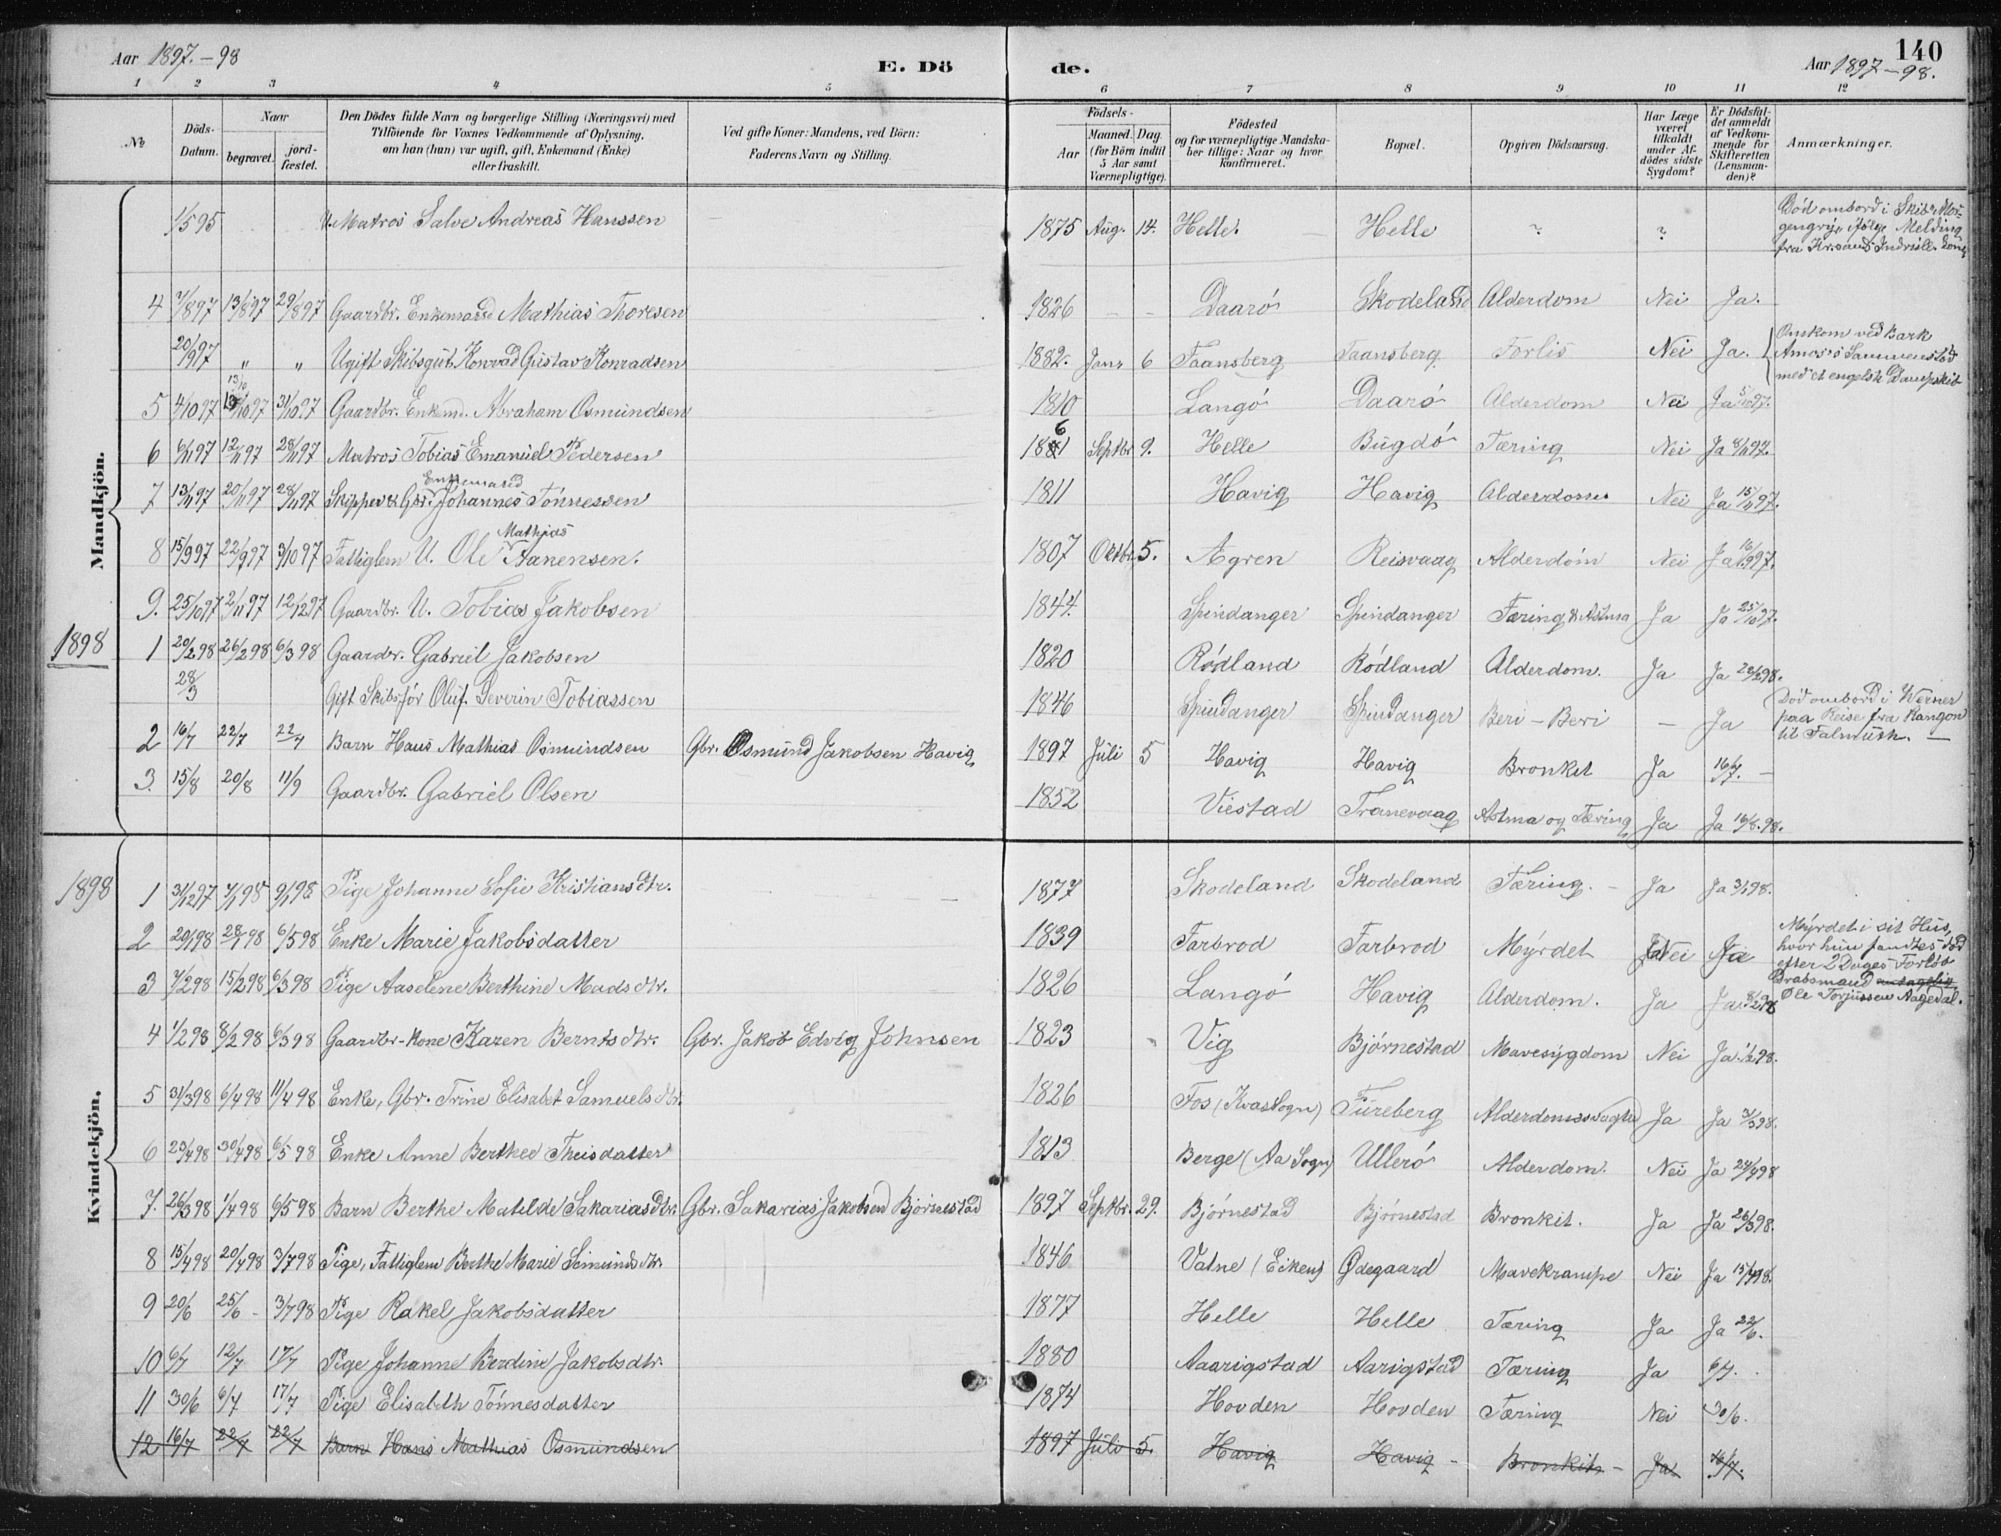 Aar 1897.-98
E. Dö
de.
Aar 1897-98.
140
1 2 3 4 5 6 7 8 9 10 11 12
№
Döds-Datum.
Naar
begravet.
jord-fæstet.
Den Dödes fulde Navn og borgerlige Stilling (Næringsvei) med
Tilföiende for Voxnes Vedkommende af Oplysning,
om han (hun) var ugift, gift, Enkemand (Enke)
eller fraskilt.
Ved gifte Koner: Mandens, ved Börn:
Faderens Navn og Stilling.
Födsels-
Aar
Maaned. Dag.
(for Börn indtil 5 Aar samt Værnepligtige).
Födested
og for værnepligtige Mandskaber tillige: Naar og hvor konfirmeret.
Bopæl.
Opgiven Dödsaarsag.
Har Læge været tilkaldt under Afdödes sidste Sygdom?
Er Dödsfaldet anmeldt af Vedkommende for Skifteretten (Lensmanden)?
Anmærkninger.
Mandkjön.
1/5 95 U. Matros Salve Andreas Hanssen 1875 Aug. 14. Helle. Helle ? ? Död ombord i Skib "Morgengry", ifölge Melding fra Kr.sands
4 7/8 97 13/8 97 29/8 97 Gaardbr. Enkemand Mathias Thoresen 1826 - - Daarö Skodeland Alderdom Nei Ja.
20/9 97 " " Ugift Skibsgut Konrad Gustav Konradsen 1882. Janr 6 Faansberg Faansberg Forlis Nei Ja. Omkom ved Bark Amors Sammenstöd med et engelsk Dampskib
5 4/10 97 13/10 97 31/10 97 Gaardbr. Enkemd. Abraham Osmundsen 1810 Langö Daarö Alderdom Nei Ja 5/10 97.
6 6/11 97 12/11 97 28/11 97 Matros Tobias Emanuel Pedersen 1861 Septbr 9. Helle Bugdö Tæring Nei Ja 8/11 97.
7 13/11 97 20/11 97 28/11 97 Skipper & Gbr. Enkemand Johannes Tönnessen 1811 Havig Havig Alderdom Nei Ja 15/11 97.
8 15/9 97 22/9 97 3/10 97 Fattiglem U. Ole Mathias Aanensen. 1807 Oktbr. 5. Ægren Reisvaag Alderdom Nei Ja 16/9 97.
9. 25/10 97 2/11 97 12/12 97 Gaardbr. U. Tobias Jakobsen 1844. Spindanger Spindanger Tæring & Astma Ja Ja 25/10 97.
1898
1 20/2 98 26/2 98 6/3 98 Gaardbr. Gabriel Jakobsen 1820 Rödland Rödland Alderdom. Ja Ja 22/2 98.
28/3 Gift Skibsför Oluf Severin Tobiassen 1846 Spindanger Spindanger Beri-Beri - Ja Död ombord i Werner paa Reise fra Rangon til Falmuth.
2 16/7 22/7 22/7 Barn Hans Mathias Osmundsen Gbr. Osmund Jakobsen Havig 1897 Juli 5 Havig Havig Bronkit Ja 16/7. -
3. 15/8 20/8 11/9 Gaardbr. Gabriel Olsen 1852 Viestad Tranevaag Astma og Tæring Ja Ja 16/8. 98.
Kvindekjön.
1898
1 31/12 97 7/1 98 9/1 98 Pige Johanne Sofie Kristiansdtr. 1877 Skodeland Skodeland Tæring. - Ja Ja 3/1 98.
2 20/1 98 28/1 98 6/5 98 Enke Marie Jakobsdatter 1839 Farbrod Farbrod Myrdet Nei Ja Myrdet i sit Hus, hvor hun fandtes död efter 2 Dages Forlöb Drabsmand antagelig Ole Torjussen Aagedal.
3 7/2 98 15/2 98 6/3 98 Pige Aaselene Berthine Madsdtr. 1826 Langö Havig Alderdom. Ja Ja 8/2 98
4 1/2 98 8/2 98 6/3 98 Gaardbr-kone Karen Berntsdtr. Gbr. Jakob Edvig Johnsen 1823 Vig Björnestad Mavesygdom Nei Ja. 1/2 98.
5 31/3 98 6/4 98 11/4 98 Enke, Gbr. Trine Elisabet Samuelsdtr. 1826 Fos (Kvas Sogn) Fureberg Alderdomssvaghed Ja Ja 31/3 98.
6 23/4 98 30/4 98 6/5 98 Enke Anne Berthee Theisdatter 1813 Berge (Aa Sogn) Ullerö Alderdom. Nei Ja 24/4 98
7. 26/3 98 1/4 98 6/5 98 Barn Berthe Matilde Sakariasdtr. Gbr. Sakarias Jakobsen Björnestad 1897 Septbr. 29. Björnestad Björnestad Bronkit. Ja Ja 26/3 98.
8 15/4 98 20/4 98 3/7 98 Pige, Fattiglem Berthe Marie Simundsdtr. 1846 Vatne (Eiken) Ødegaard Mavekrampe Nei Ja 15/4 98.
9 20/6 25/6 - 3/7 98 Pige Rakel Jakobsdatter 1877 Helle Helle Tæring Ja Ja 22/6.
10 6/7 12/7 17/7 Pige Johanne Berdine Jakobsdtr. 1880 Aaarigstad Aarigstad Tæring Ja 6/7.
11 30/6 6/7 17/7 Pige Elisabeth Tönnesdatter 1874 Hovden Hovden Tæring Nei 30/6.
12 16/7 22/7 22/7 Barn Hans Mathias Osmundsen 1897 Juli 5. Havig Havig - Bronkit - Ja 16/7.